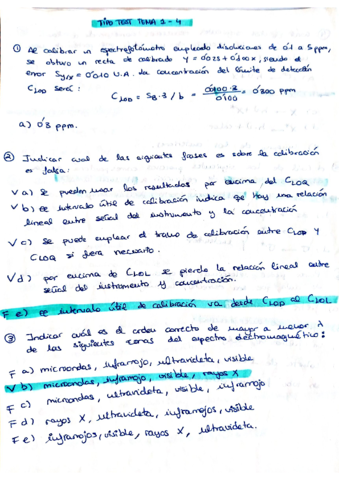 TIPO TEST TEMA 1 - 4
① Al calibrar un espectrofotómetro empleando disoluciones de 0'1 a 5 ppm,
se obtuvo un recta de calibrado Y = 0'025 + 0'100x, siendo el
error Sy/x = 0'010 U.A. La concentración del límite de detección
CLOD será: CLOD = SB·3 / b = 0'0100·3 / 0'100 = 0'300 ppm
a) 0'3 ppm.
② Indicar cual de las siguientes frases es sobre la calibración
es falsa:
V a) Se pueden usar los resultados por encima del CLOQ
V b) El intervalo útil de calibración indica que hay una relación
lineal entre señal del instrumento y la concentración
V c) Se puede emplear el tramo de calibración entre CLOD y
CLOQ si fuera necesario.
V d) por encima de CLOL se pierde la relación lineal entre
señal del instrumento y concentración.
F e) el intervalo útil de calibración va desde CLOD al CLOL.
③ Indicar cuál es el orden correcto de mayor a menor λ
de las siguientes zonas del espectro electromagnético:
F a) microondas, infrarrojo, ultravioleta, visible
V b) microondas, infrarrojo, visible, rayos X
F c) microondas, ultravioleta, visible, infrarrojo
F d) rayos X, ultravioleta, infrarrojos, visible
F e) infrarrojos, visible, rayos X, ultravioleta.